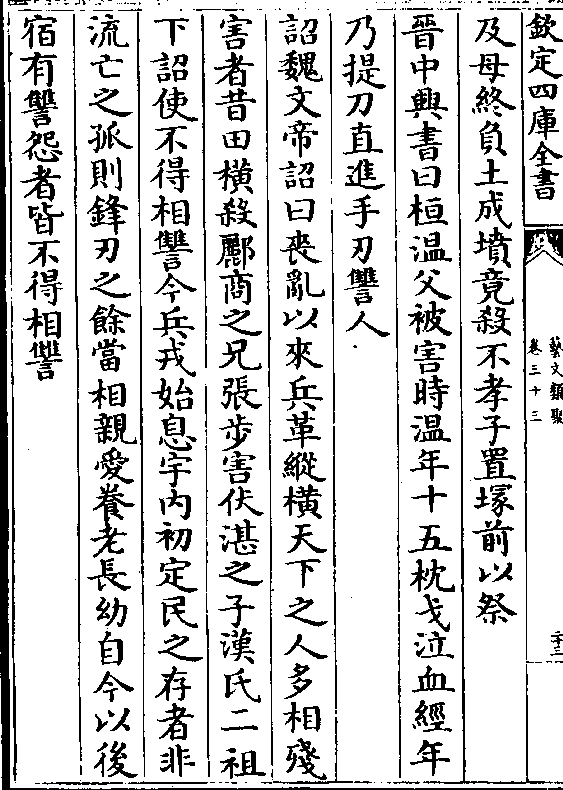 欽定四庫全書
藝文類聚
卷三十三
二十三
及母終負土成墳竟殺不孝子置塚前以祭
晉中興書曰桓溫父被害時溫年十五枕戈泣血經年
乃提刀直進手刃讐人
詔魏文帝詔曰喪亂以來兵革縱橫天下之人多相殘
害者昔田橫殺酈商之兄張步害伏湛之子漢氏二祖
下詔使不得相讐今兵戎始息宇內初定民之存者非
流亡之孤則鋒刃之餘當相親愛養老長幼自今以後
宿有讐怨者皆不得相讐